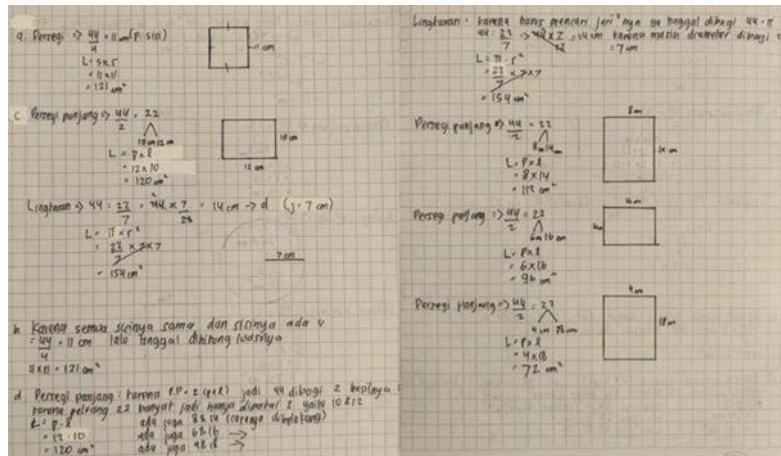 a. Persegi => 44/4 = 11 cm (P. sisi)
L = s x s
= 11 x 11
= 121 cm²
11 cm
c Persegi panjang => 44/2 = 22
10 cm 12 cm
L = p x l
= 12 x 10
= 120 cm²
10 cm
12 cm
Lingkaran => 44 : 22/7 = 44 x 7/22 = 14 cm -> d (j = 7 cm)
L = π x r²
= 22/7 x 7 x 7
= 154 cm²
7 cm
b. Karena semua sisinya sama dan sisinya ada 4
= 44/4 = 11 cm lalu tinggal dihitung luasnya
11 x 11 = 121 cm²
d. Persegi panjang : karena P.P = 2 (p+l) jadi 44 dibagi 2 hasilnya
karena peluang 22 banyak jadi hanya 2 yaitu 10 & 12
L = p . l
= 12 . 10
= 120 cm²
ada juga 8 & 14
ada juga 6 & 16 =>
ada juga 4 & 18 =>
Lingkaran : karena harus mencari jari²nya tinggal dibagi 44 : π
44 : 22/7 => 44 x 7/22 = 14 cm karena masih diameter dibagi 2
= 7 cm
L = π . r²
= 22/7 x 7 x 7
= 154 cm²
Persegi panjang => 44/2 = 22
8 cm 14 cm
L = p x l
= 8 x 14
= 112 cm²
8 cm
14 cm
Persegi panjang => 44/2 = 22
6 cm 16 cm
L = p x l
= 6 x 16
= 96 cm²
16 cm
Persegi panjang => 44/2 = 22
4 cm 18 cm
L = p x l
= 4 x 18
= 72 cm²
4 cm
18 cm